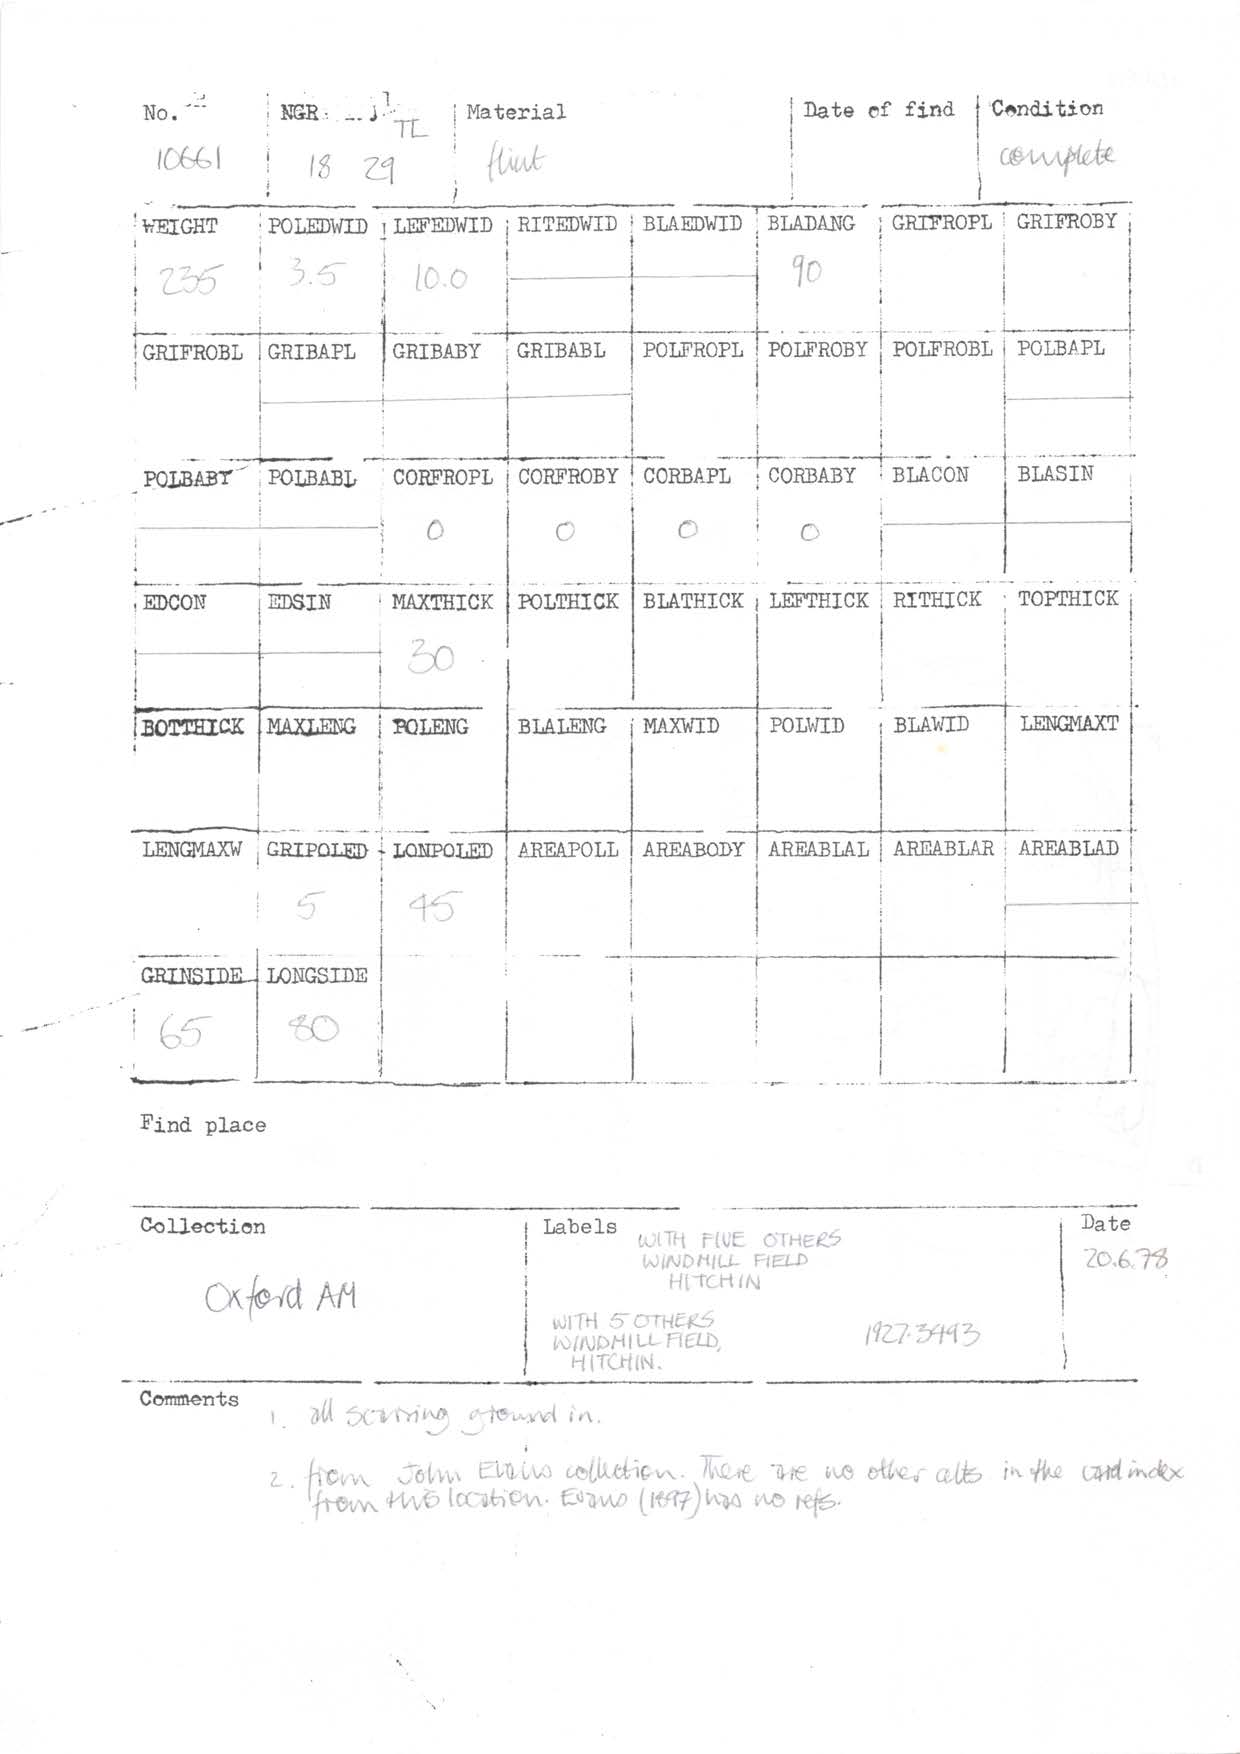 No. NGR Material Date of find Condition
TL
10661 18 29 flint complete
WEIGHT POLEDWID LEFEDWID RITEDWID BLAEDWID BLADANG GRIFROPL GRIFROBY
235 3.5 10.0 90
GRIFROBL GRIBAPL GRIBABY GRIBABL POLFROPL POLFROBY POLFROBL POLBAPL
POLBABY POLBABL CORFROPL CORFROBY CORBAPL CORBABY BLACON BLASIN
0 0 0 0
EDCON EDSIN MAXTHICK POLTHICK BLATHICK LEFTHICK RITHICK TOPTHICK
30
BOTTHICK MAXLENG POLENG BLALENG MAXWID POLWID BLAWID LENGMAXT
LENGMAXW GRIPOLED LONPOLED AREAPOLL AREABODY AREABLAL AREABLAR AREABLAD
5 45
GRINSIDE LONGSIDE
65 80
Find place
Collection Labels Date
WITH FIVE OTHERS
WINDMILL FIELD
HITCHIN
20.6.78
Oxford AM
WITH 5 OTHERS
WINDMILL FIELD,
HITCHIN.
1927.3493
Comments
1. all scarring ground in.
2. from John Evans collection. There are no other celts in the card index
from this location. Evans (1897) has no refs.